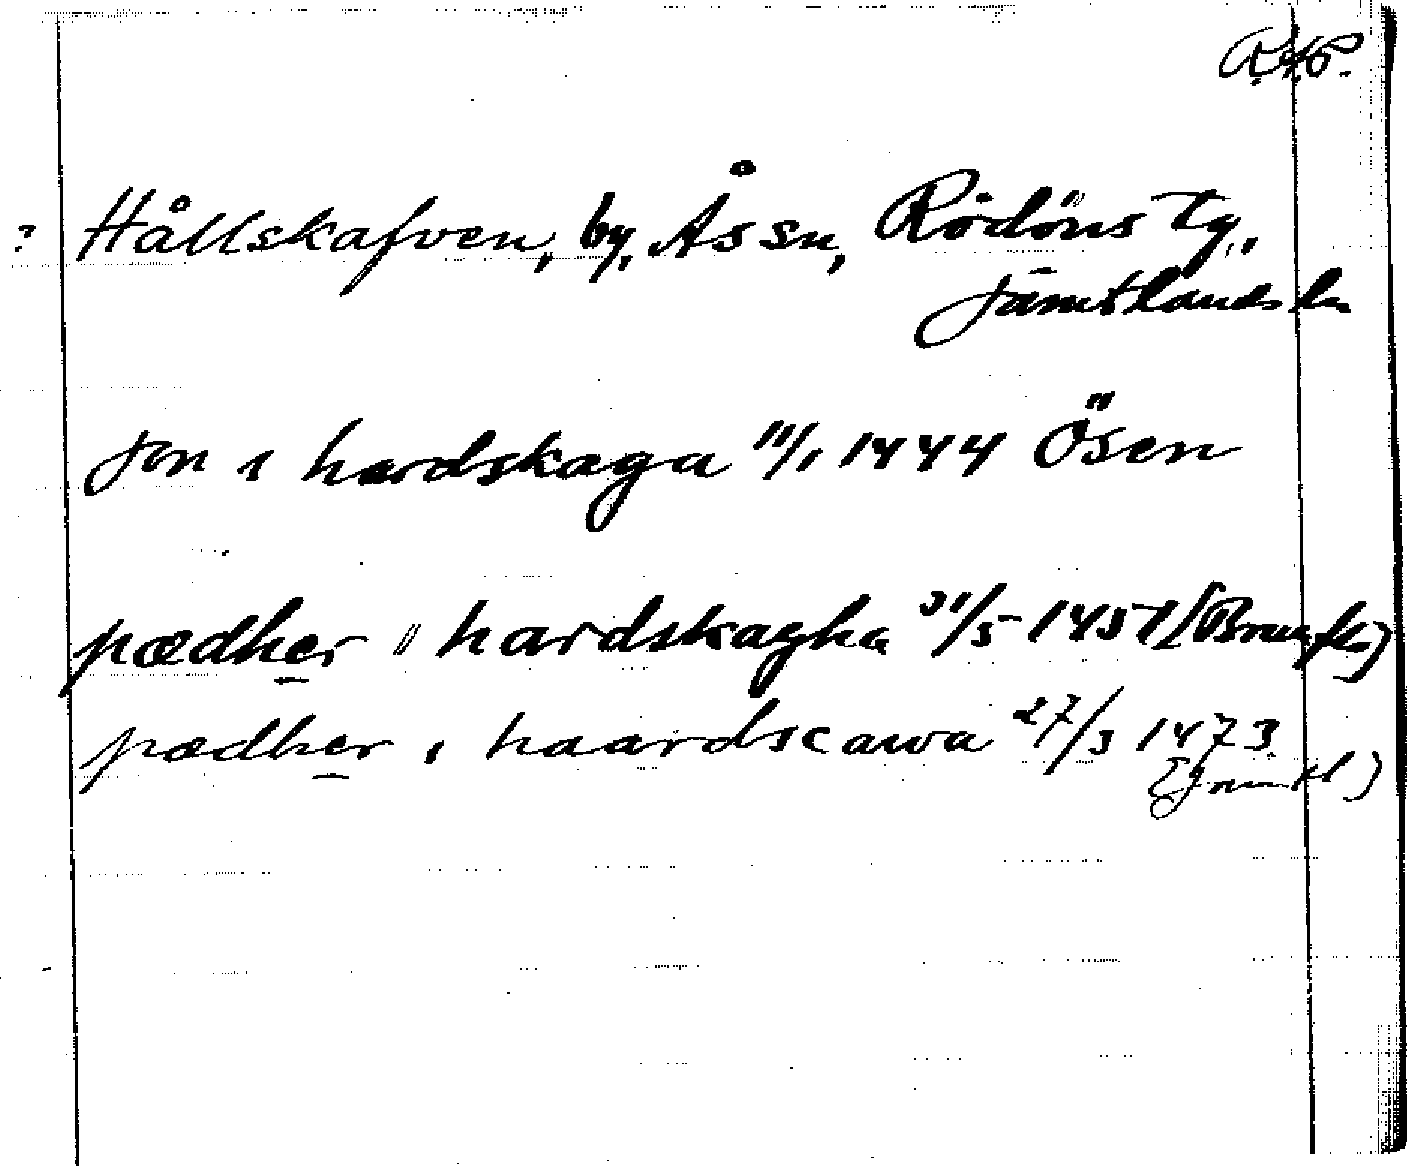 R.A.P.
? Hållskafven, by, Ås sn, Rödöns tg,
Jämtlands ln
Jon i hardskaga 11/1 1444 Ösen
pædher i hardskagha 31/5 1451 (Brunflo)
pædher i haardscawa 27/3 1473